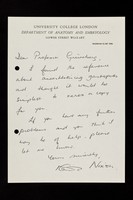 UNIVERSITY COLLEGE LONDON
DEPARTMENT OF ANATOMY AND EMBRYOLOGY
GOWER STREET WC1E 6BT
Dear Professor Grüneberg,
I found the reference
about
and thought it would be
simplest to send a copy
for you
If you have any further
problems and you think I
may be of help, please
let me know.
Yours sincerely,